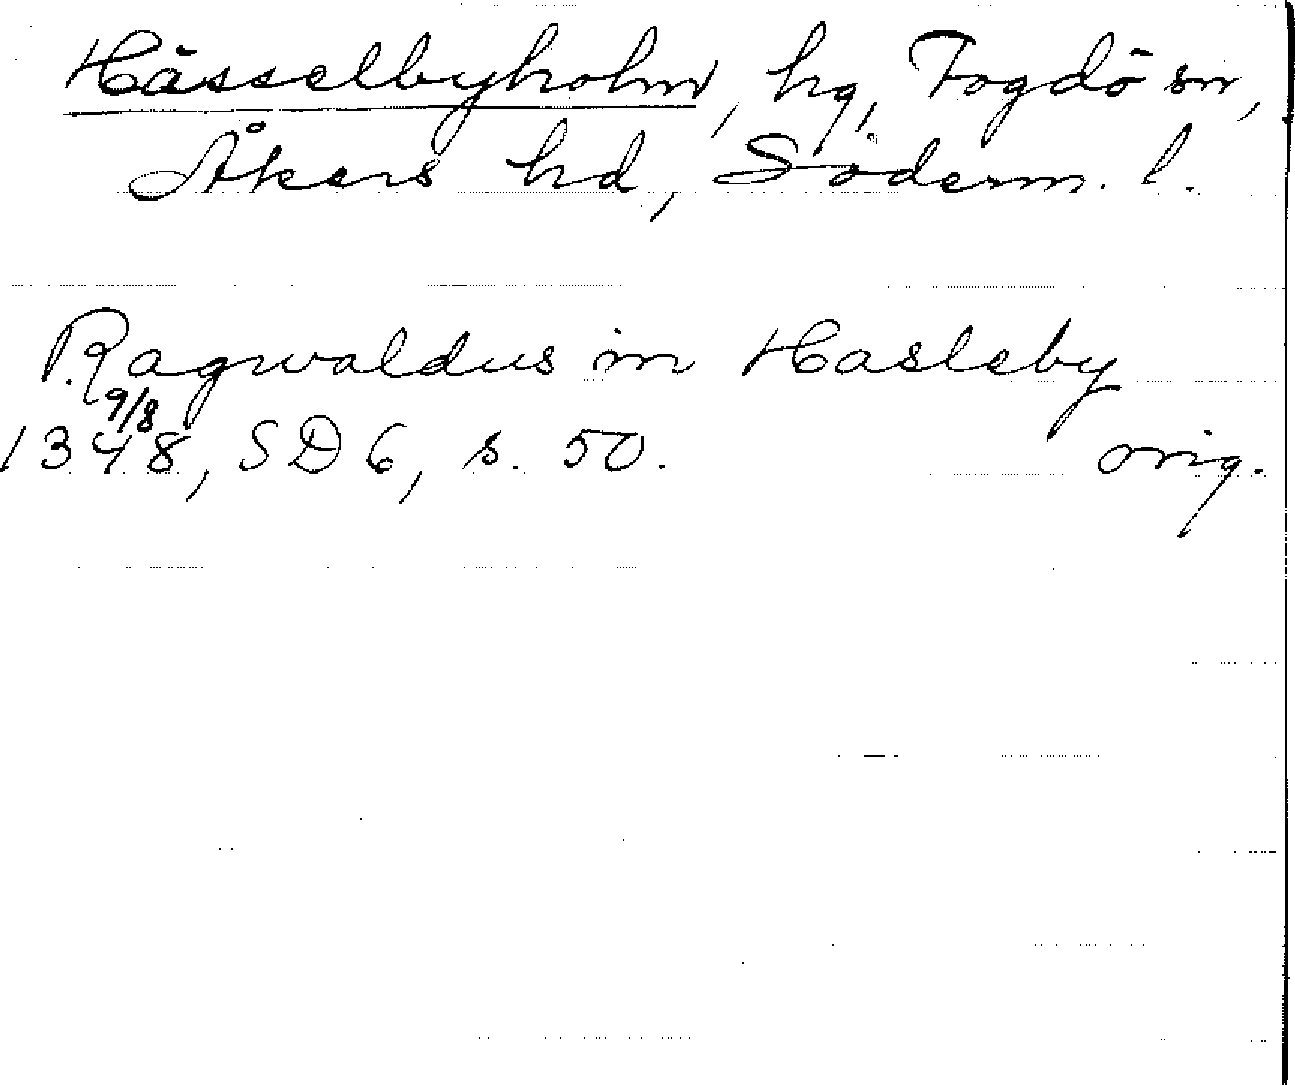 Hässelbyholm, hg, Fogdö sn,
Åkers hd, Söderm. l.
Ragwaldus in Hasleby
9/8
1348, SD 6, s. 50. orig.